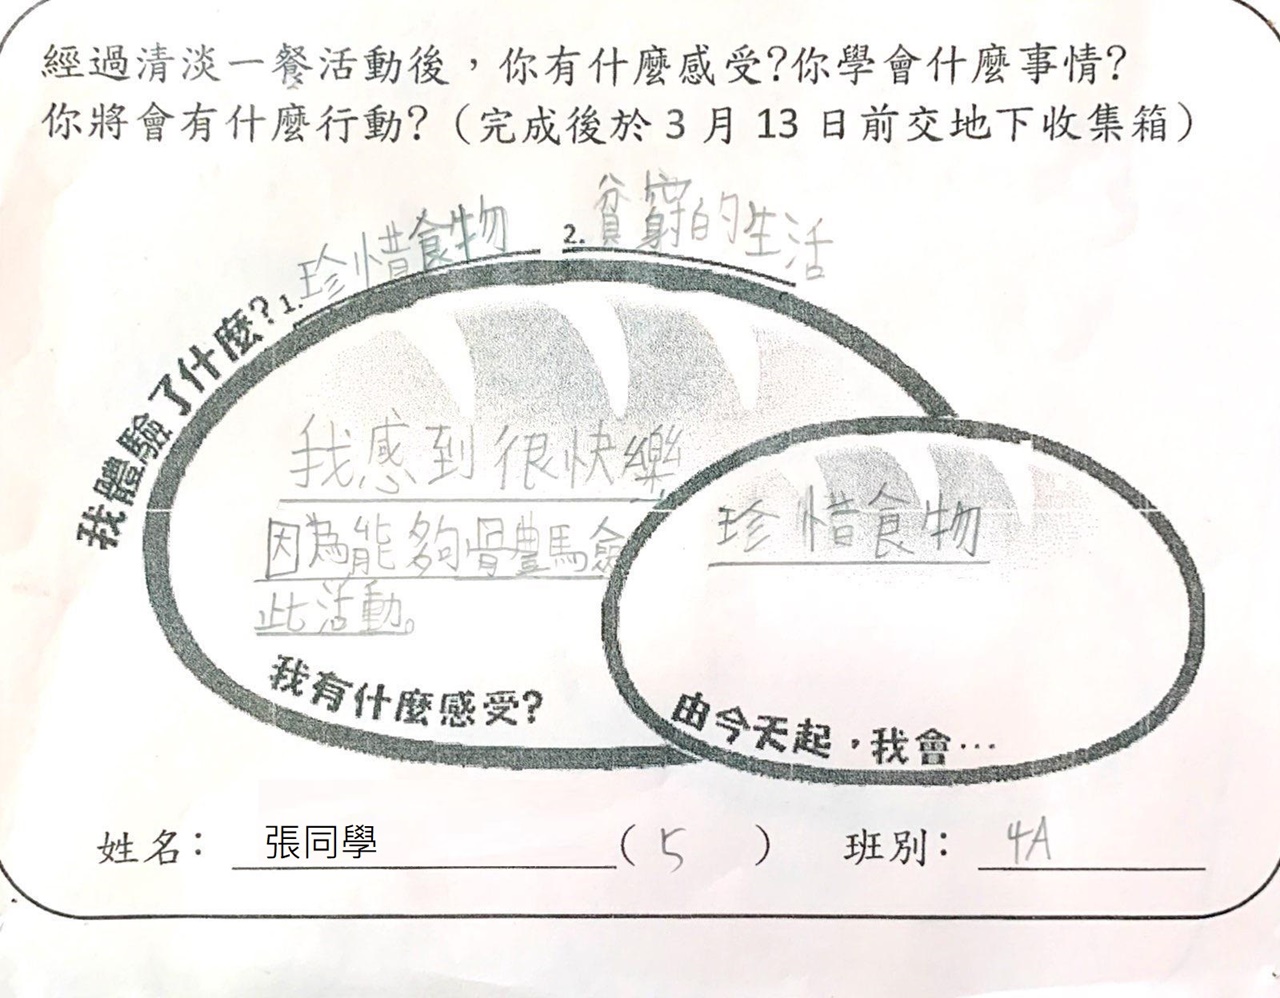 經過清淡一餐活動後，你有什麼感受?你學會什麼事情?
你將會有什麼行動?（完成後於 3 月 13 日前交地下收集箱）
我體驗了什麼?
1. 珍惜食物
2. 貧窮的生活
我感到很快樂
因為能夠體驗
此活動。
我有什麼感受?
珍惜食物
由今天起，我會…
姓名： 張同學 （ 5 ） 班別： 4A